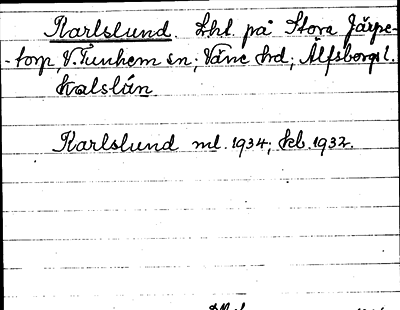 Karlslund. Lht. på Stora Järpe-
-torp, V. Tunhem sn; Väne hd; Älfsborgs l.
Karlslund ml. 1934; kb. 1932.